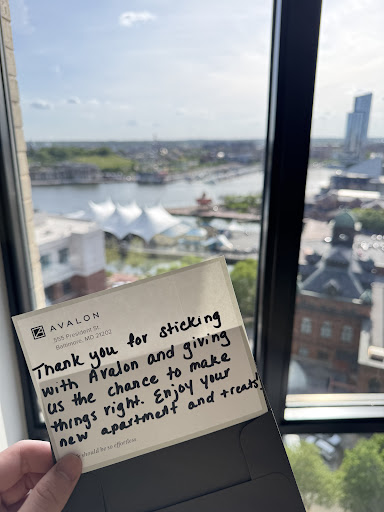 AVALON
555 President St.
Baltimore, MD 21202
Thank you for sticking
with Avalon and giving
us the chance to make
things right. Enjoy your
new apartment and treats!
should be so effortless.